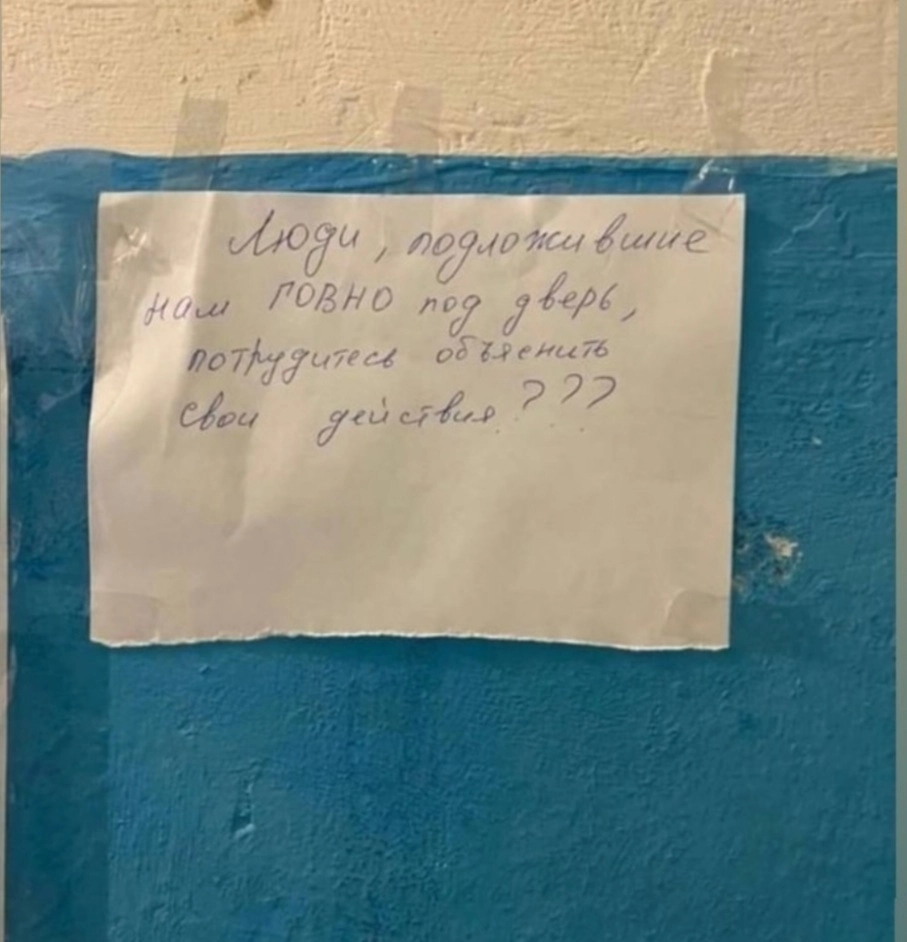 Люди, подложившие
нам ГОВНО под дверь,
потрудитесь объяснить
свои действия???